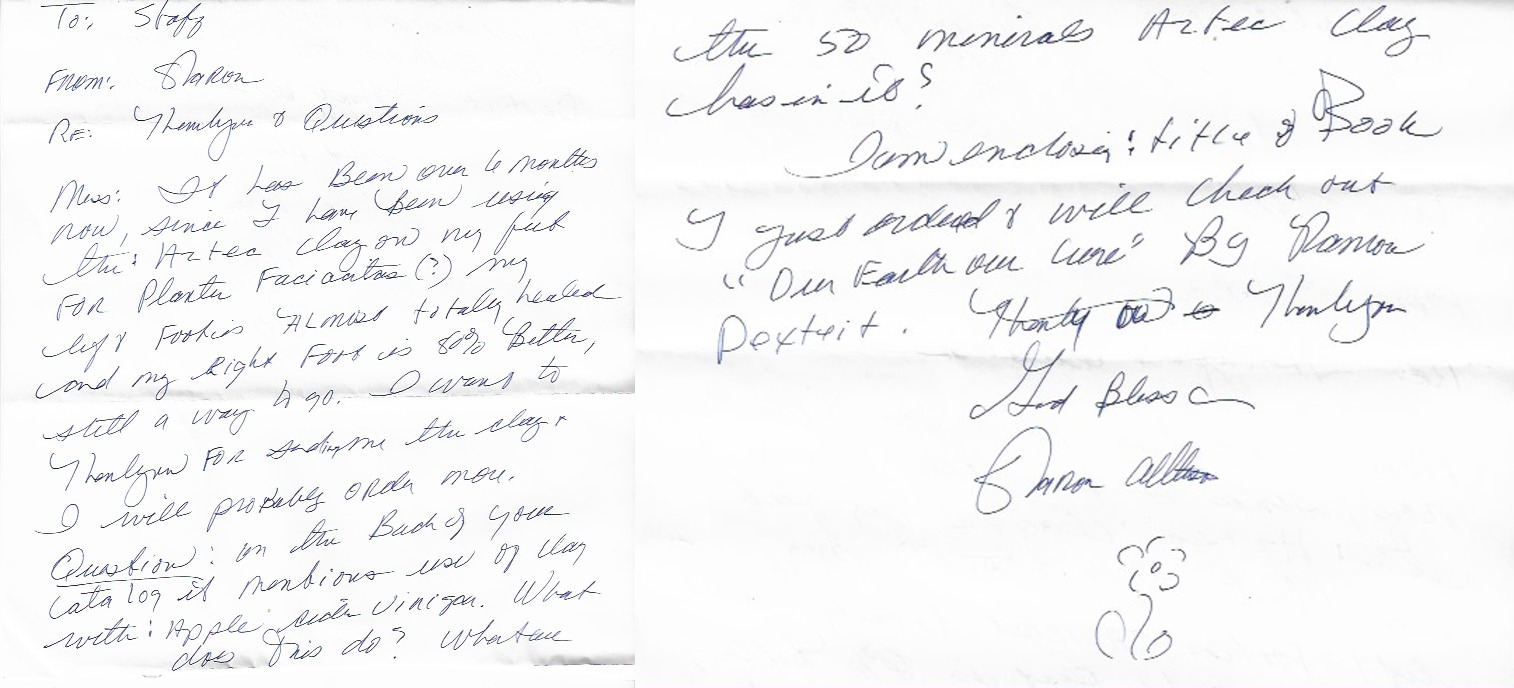 To: Staff
From: Sharon
RE: Thankyou & Questions
Mess: It has Been over 6 months
now, since I have Been using
the: Aztec Clay on my feet
FOR Planter Faciaitas (?) my
left Foot is ALMOST totally healed
and my Right Foot is 80% Better,
still a way to go. I want to
Thankyou FOR sending me the clay &
I will probably order more.
Question: on the Back of your
catalog it mentions use of clay
with: Apple cider Vinigar. What
does this do? What are
the 50 minirals Aztec Clay
has in it?
I am enclosing: title of Book
I just ordered & will check out
"Our Earth our Cure" By Ramon
Dextreit. Thankyou
God Bless
Sharon